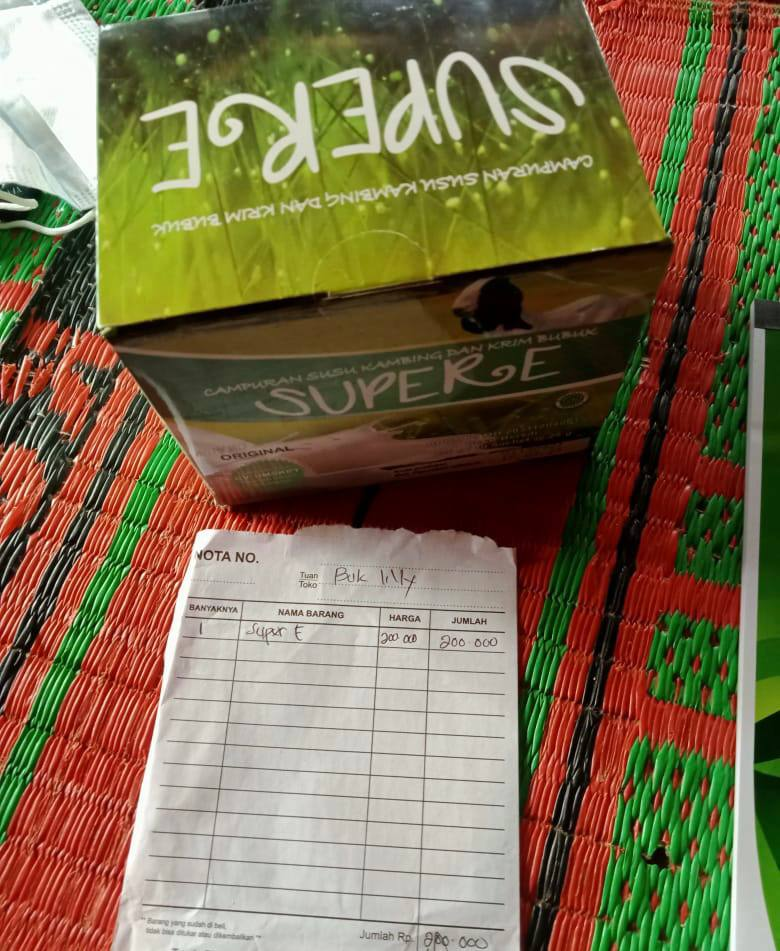 SUPERE
CAMPURAN SUSU KAMBING DAN KRIM BUBUK
CAMPURAN SUSU KAMBING DAN KRIM BUBUK
SUPERE
ORIGINAL
NOTA NO.
Tuan
Toko
Buk lilly
BANYAKNYA NAMA BARANG HARGA JUMLAH
1 Super E 200.000 200.000
** Barang yang sudah di beli,
tidak bisa ditukar atau dikembalikan **
Jumlah Rp. 200.000